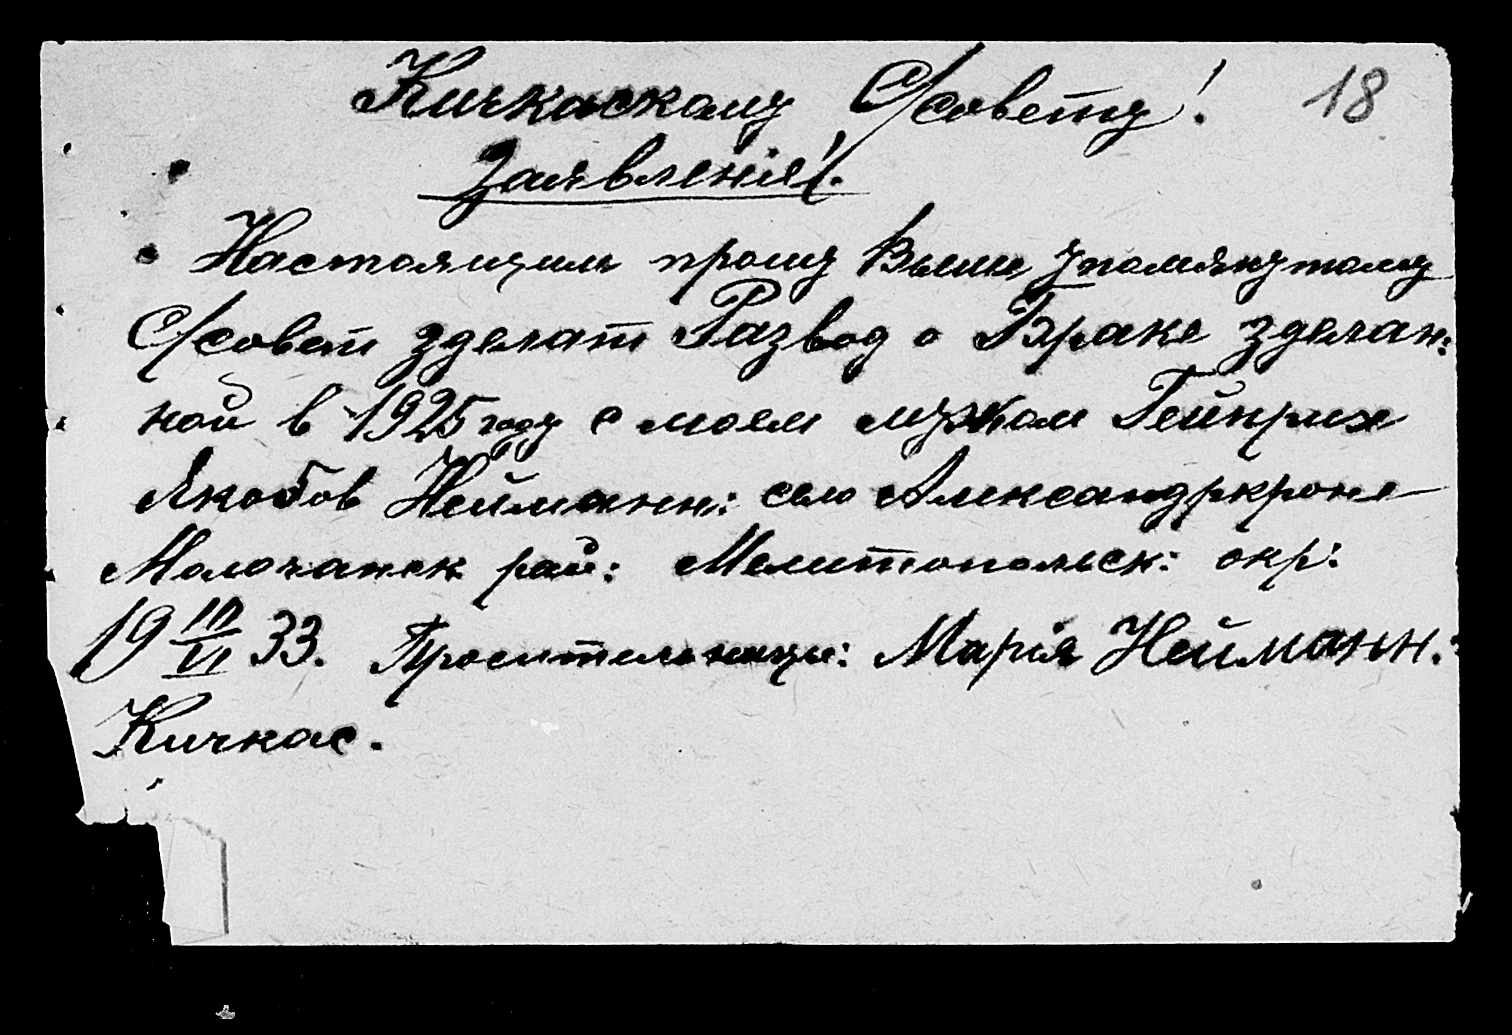 Кичкаскому С/совету! 18
Заявленіе!
Настоящим прошу Выше упомянутому
С/совет зделат Развод о Браке зделан:
ной в 1925 году с моем мужом Гейнрих
Якобов Нейманн: село Александркроне
Молочанск рай: Мелитопольск: окр:
19 III/VI 33. Просительница: Марія Нейманн.
Кичкас.